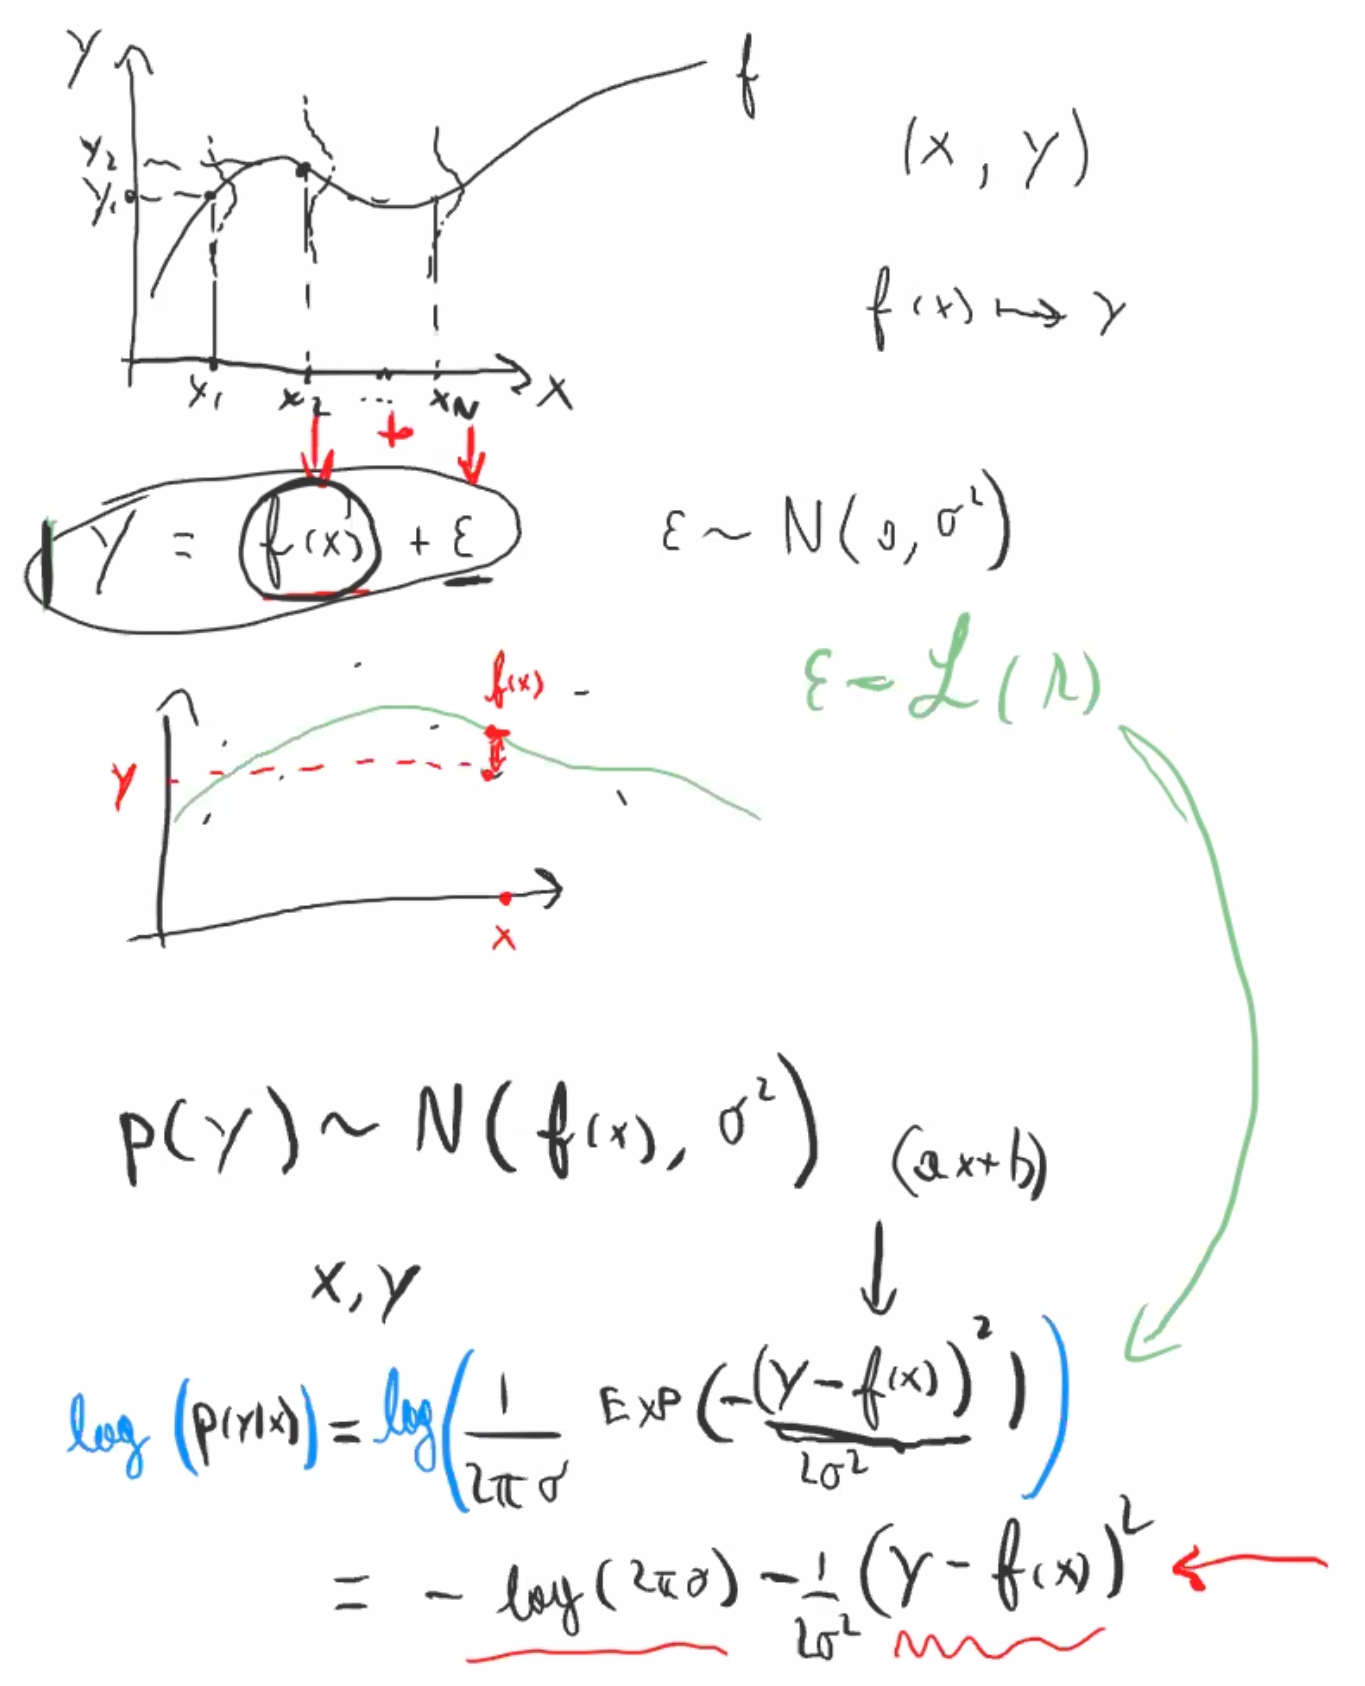 Y
f
(x, y)
y₂
y₁
f(x) ↦ y
x₁ x₂ ... x_N X
+
Y = f(x) + ε
ε ~ N(0, σ²)
ε ~ ℒ(λ)
f(x)
y
x
p(y) ~ N(f(x), σ²)
(ax+b)
x, y
log (p(y|x)) = log( 1/(2πσ) EXP(-(y-f(x))²/(2σ²)) )
= - log(2πσ) - 1/(2σ²) (y - f(x))²